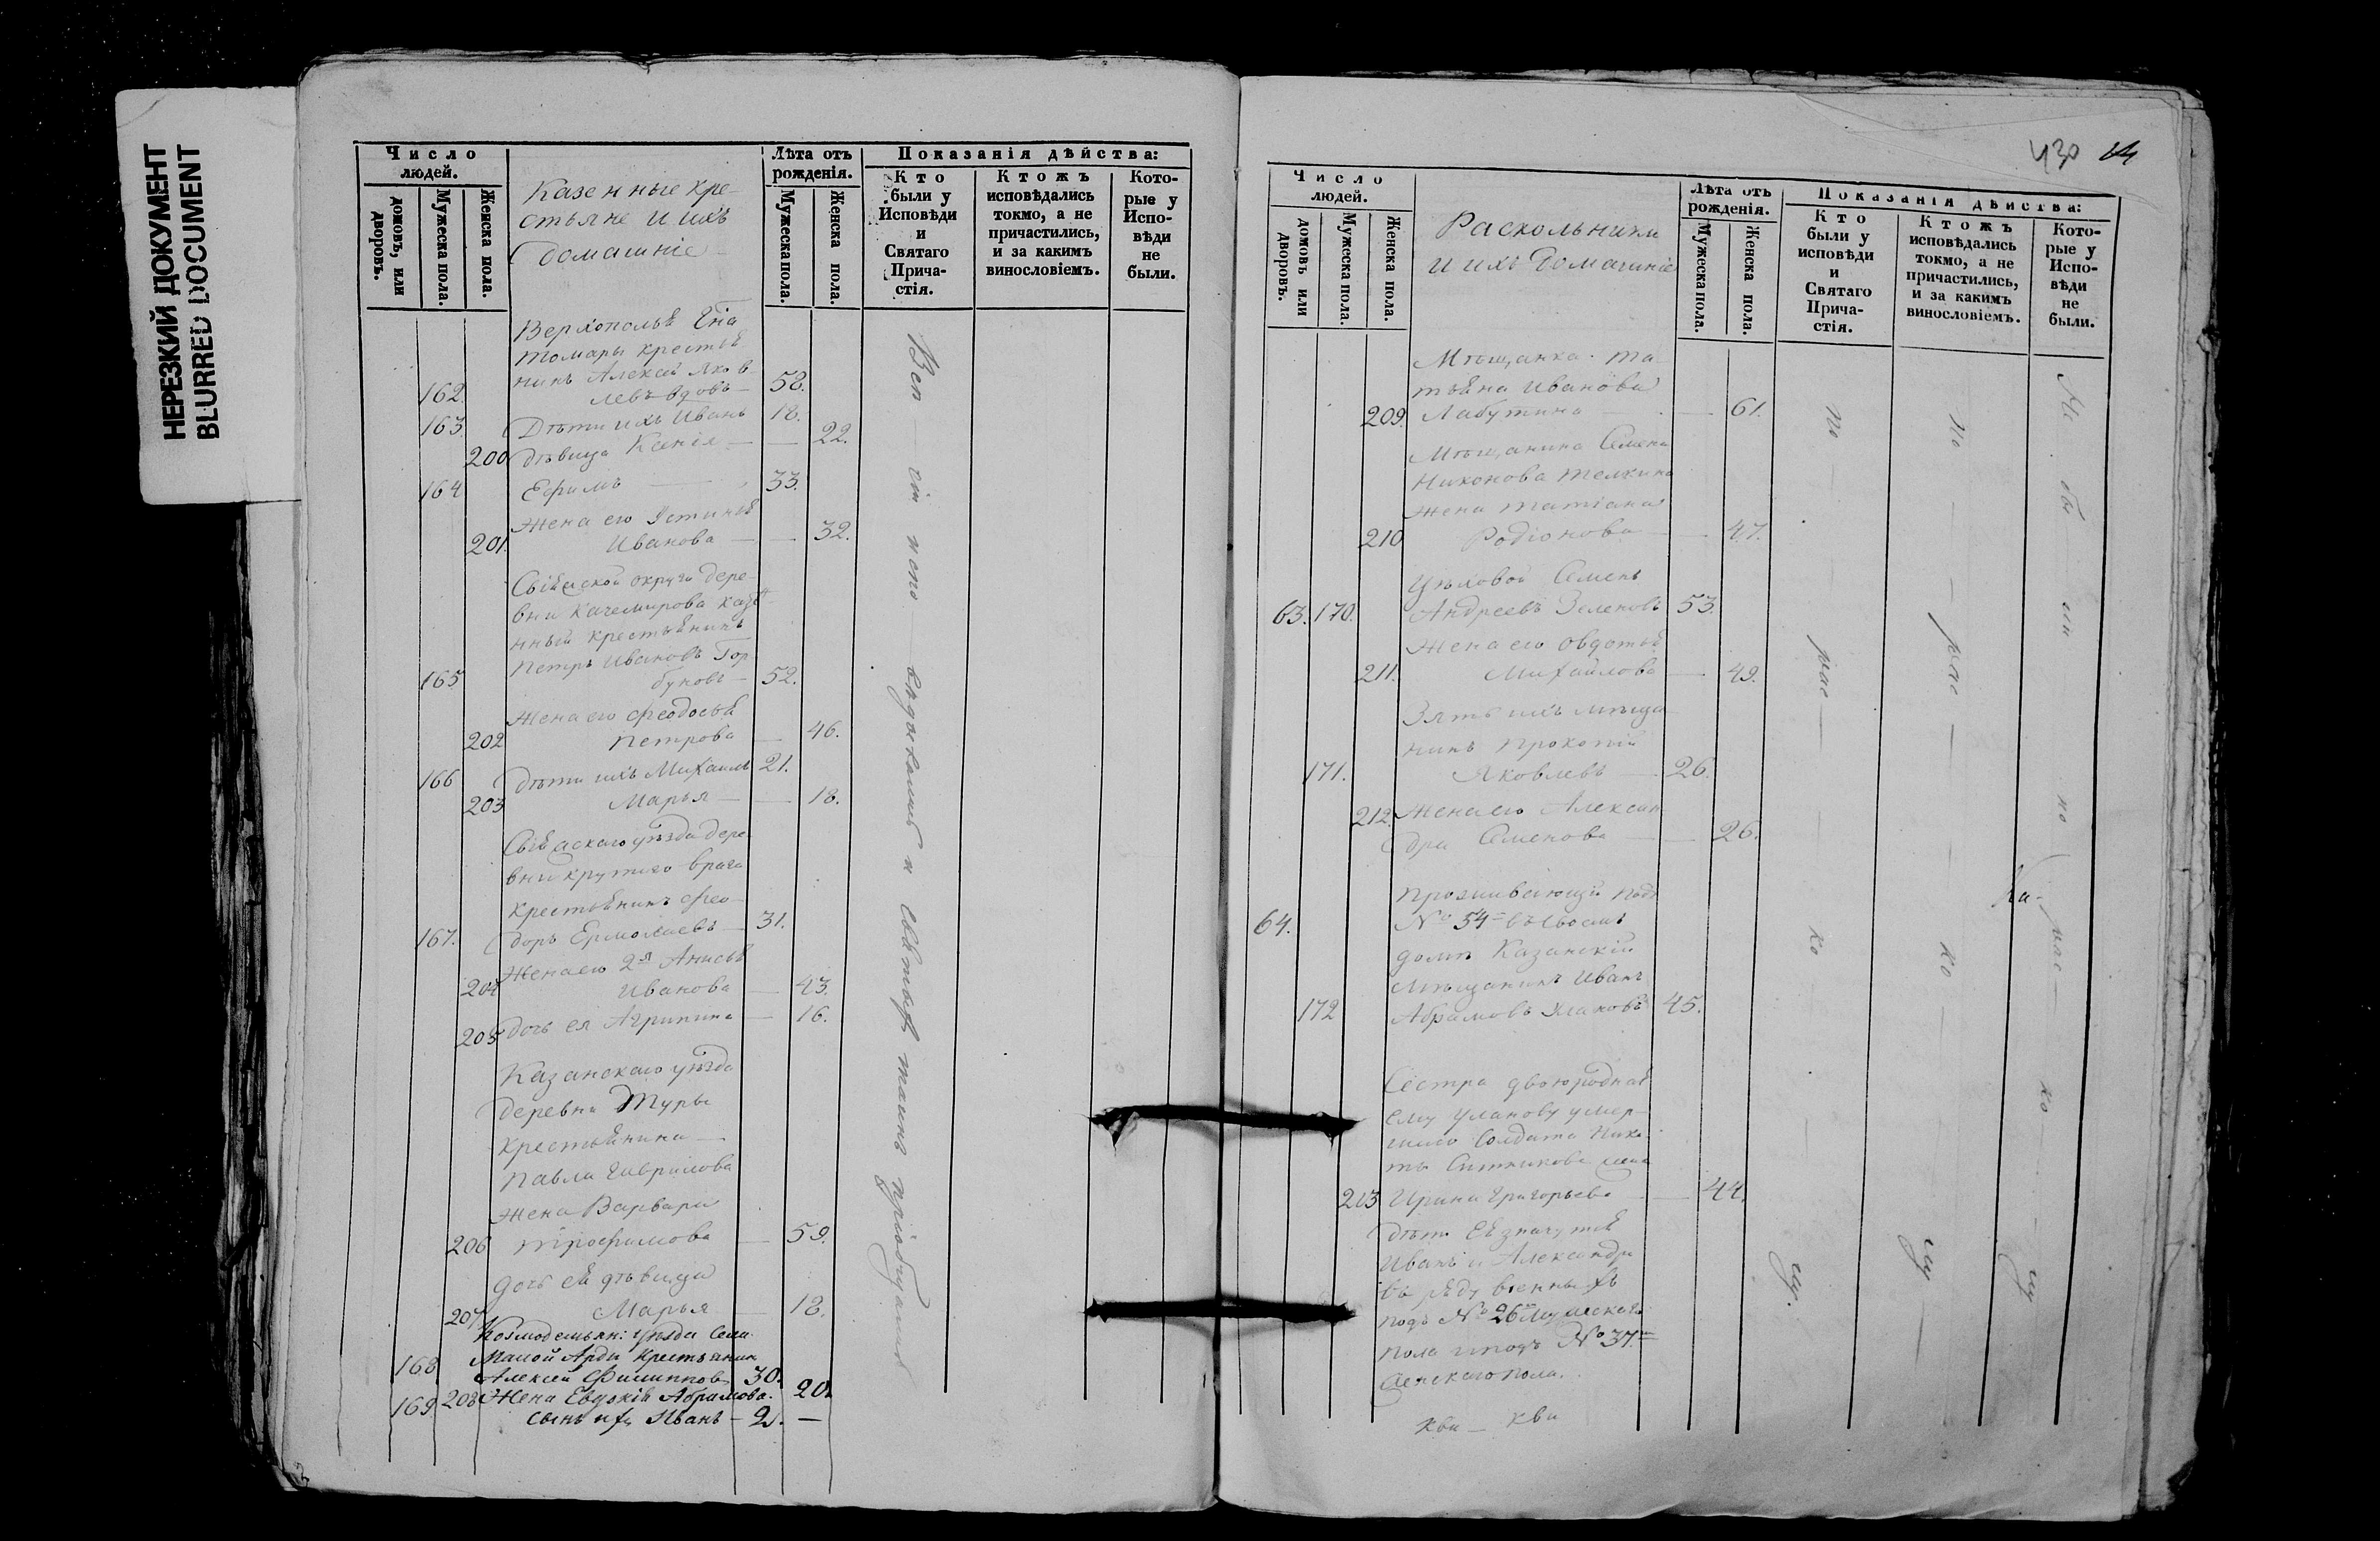 НЕРЕЗКИЙ ДОКУМЕНТ
BLURRED DOCUMENT
Число
людей.
домовъ, или
дворовъ.
Мужеска пола.
Женска пола.
Казенные кре-
стьяне и ихъ
домашніе
Лѣта отъ
рожденія.
Мужеска пола.
Женска пола.
Показанія дѣйства:
Кто
были у
Исповѣди
и
Святаго
Прича-
стія.
Ктожъ
исповѣдались
токмо, а не
причастились,
и за какимъ
винословіемъ.
Кото-
рые у
Испо-
вѣди
не
были.
крестья
162. нинъ Алексѣй Яков
левъ вдовъ — 58.
163. Дѣти ихъ Иванъ 18.
200 дѣвица Ксенія — — 22.
164 Ефимъ — 33.
Жена его Устинья
201. Иванова — — 32.
округи дере-
вни казе
нный крестьянинъ
Петръ Ивановъ Гор
165 буновъ — 52.
Жена его Феодосья
202 Петрова — 46.
166 дѣти ихъ Михаилъ 21.
203 Марья — — 18.
уѣзда дере
вни Крутаго врага
крестьянинъ Фео
167. доръ Ермолаевъ — 31.
Жена его 2я Анисья
204 Иванова — 43.
205 дочь ея Агрипина — 16.
Казанскаго уѣзда
деревни Туры
крестьянина —
Павла Гаврилова
жена Варвара
206 Трофимова — 59.
дочь ея дѣвица
207 Марья — 18.
Козмодемьян: уѣзда села
Малой Арды крестьянин
168 Алексей Филиппов 30.
208 Жена Евдокія Абрамова. 20.
169 сынъ ихъ Иванъ — 2. —
Всѣ сіи исповѣдывались и святыхъ таинъ пріобщались
430 14
Число
людей.
домовъ или
дворовъ.
Мужеска пола.
Женска пола.
Раскольники
и ихъ домашніе
Лѣта отъ
рожденія.
Мужеска пола.
Женска пола.
Показанія дѣйства:
Кто
были у
исповѣди
и
Святаго
Прича-
стія.
Ктожъ
исповѣдались
токмо, а не
причастились,
и за какимъ
винословіемъ.
Кото-
рые у
Испо-
вѣди
не
были.
Мѣщанка Та
тьяна Иванова
209. Лабутина — — 61.
Мѣщанина Семена
Никонова Телкина
жена Татіана
210 Родіонова — — 47.
Цѣховой Семенъ
63. 170. Андреевъ Зеленовъ 53.
Жена его Овдотья
211. Михайлова — 49.
Зять ихъ мѣща
нинъ Прокопій
171. Яковлевъ — 26.
212. Жена его Алексан
дра Семенова — — 26.
Проживающій подъ
64. № 54 въ своемъ
домѣ Казанскій
мѣщанинъ Иванъ
172 Абрамовъ Улановъ 45.
Сестра двоюродная
ему Уланову умер
шаго солдата Ники
ты Ситникова жена
213 Ирина Григорьева — 44.
дѣти ея значутся
Иванъ и Александра
въ ряду военныхъ
подъ № 26 мужескаго
пола и подъ № 37
женскаго пола.
по — рас — ко — лу.
по — рас — ко — лу —
Не бы ли по рас — ко — лу